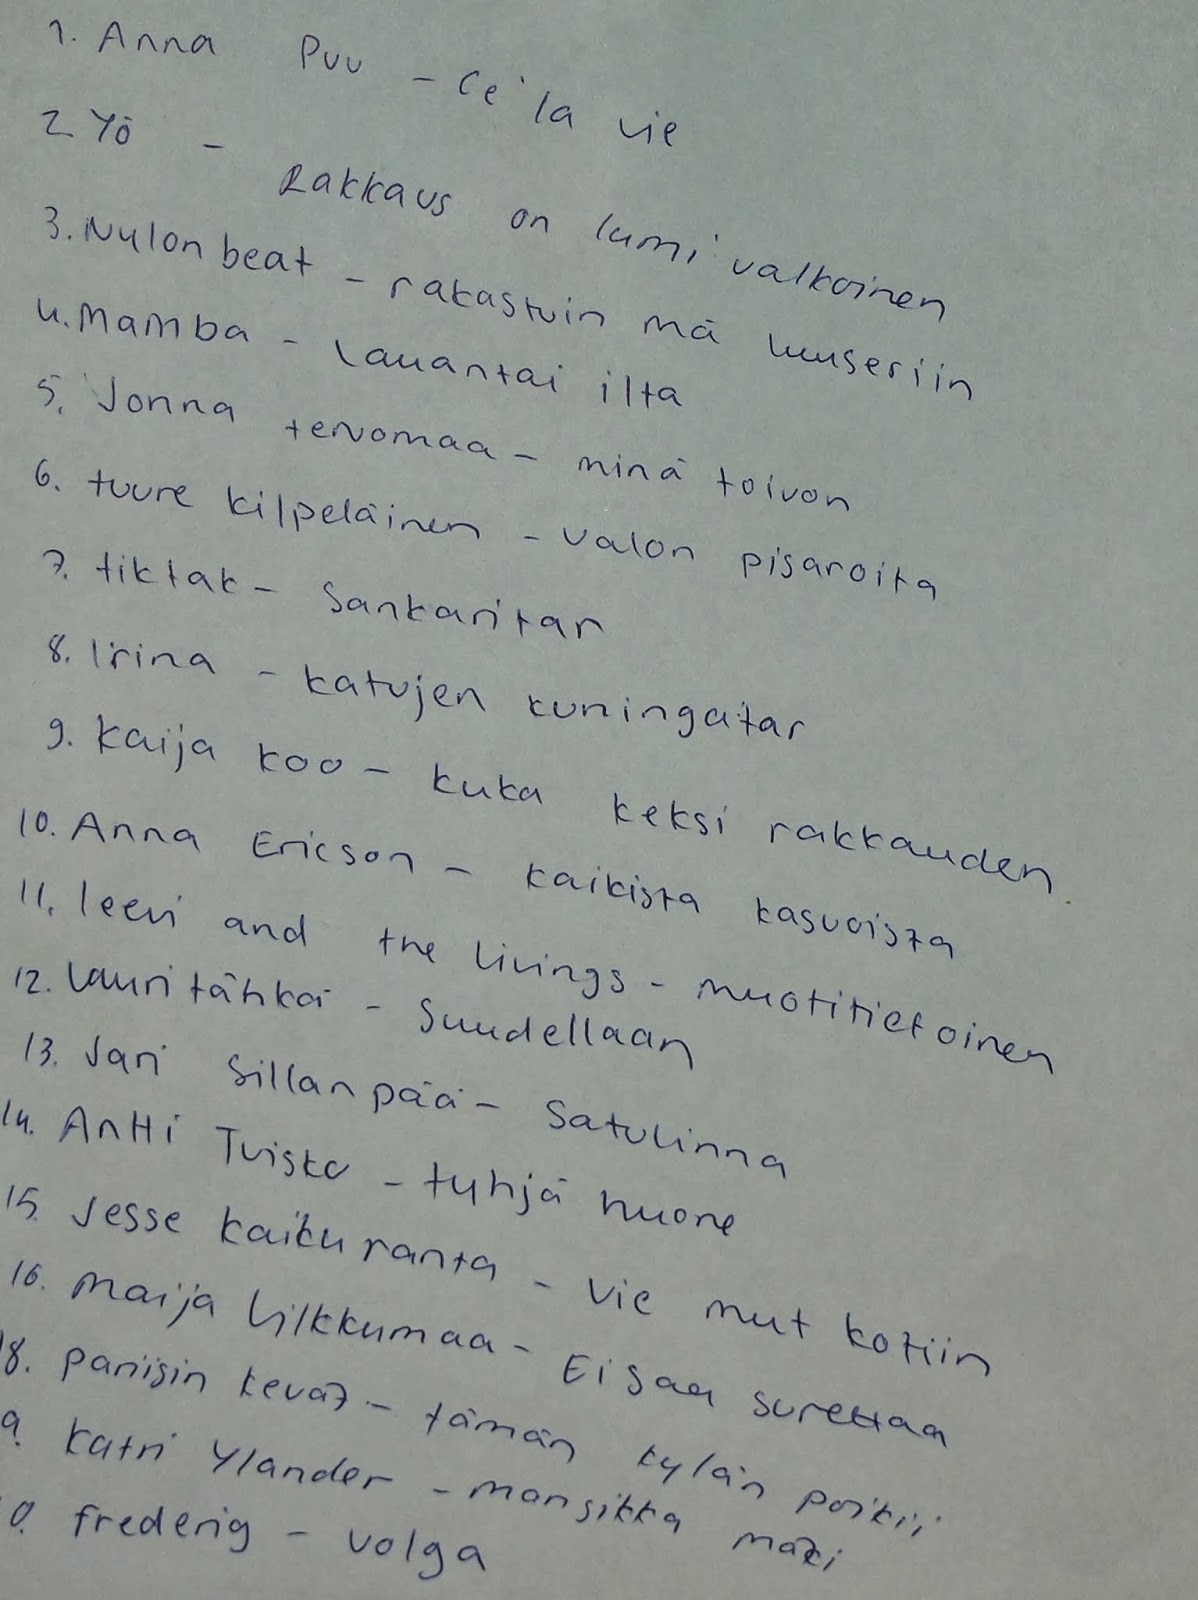 1. Anna Puu - Ce' la vie
2 Yö - Rakkaus on lumi valkoinen
3. Nylon beat - rakastuin mä luuseriin
4. Mamba - Lauantai ilta
5. Jonna tervomaa - minä toivon
6. tuure kilpeläinen - valon pisaroita
7. tiktak - Sankaritar
8. Irina - katujen kuningatar
9. kaija koo - kuka keksi rakkauden
10. Anna Ericson - kaikista kasvoista
11. leevi and the livings - muotitietoinen
12. Lauri tähkä - Suudellaan
13. Jari Sillanpää - Satulinna
14. Antti Tuisku - tyhjä huone
15. Jesse kaikuranta - vie mut kotiin
16. Maija Vilkkumaa - Ei saa surettaa
18. pariisin kevät - tämän kylän poikii
9. katri Ylander - mansikka mäki
0. frederig - volga